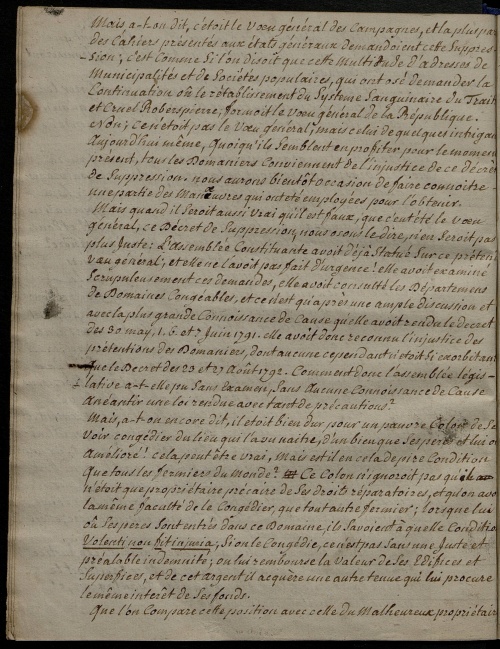 Mais a-t-on dit, c'étoit le Vœu général des Campagnes, et la plus pa
des Cahiers présentés aux états généraux demandoient cette Suppres
-sion; c'est comme Si l'on disoit que cette Multitude d'adresses de
Municipalités et de Sociétés populaires, qui ont osé demander la
Continuation ou le rétablissement du Systeme Sanguinaire du Trait
et Cruel Roberspierre, formoit le Vœu général de la République.
Non; Ce n'étoit pas le Vœu général, mais celui de quelques intrigan
Aujourd'hui même, quoiqu'ils Semblent en profiter pour le momen
présent, tous les Domaniers Conviennent de l'injustice de ce décret
de Suppression. nous aurons bientôt occasion de faire connoitre
une partie des Manœuvres qui ont été employées pour l'obtenir.
Mais quand il Seroit aussi vrai qu'il est faux, que c'eut été le vœu
général, ce Décret de Suppression, nous osons le dire, n'en Seroit pas
plus Juste: L'assemblée Constituante avoit déjà Statué Sur ce préten
vœu général; et elle ne l'avoit pas fait d'urgence! elle avoit examiné
Scrupuleusement ces demandes, elle avoit consulté les Départemens
de Domaines Congéables, et ce n'est qu'après une ample discussion et
avec la plus grande Connoissance de Cause qu'elle avoit rendu le decret
des 30 may, 1. 6 et 7 Juin 1791. elle avoit donc reconnu l'injustice des
prétentions des Domaniers, dont aucune cependant n'étoit Si exorbitant
que le Decret des 23 et 27 Août 1792. Comment donc l'assemblée légis-
lative a-t-elle pu Sans Examen, Sans Aucune Connoissance de Cause
anéantir une loi rendue avec tant de précautions?
Mais, a-t-on encore dit, il étoit bien dur pour un pauvre Colon de Se
Voir congédier du lieu qui l'a vu naitre, d'un bien que Ses peres et lui on
Amélioré! cela peut être vrai, Mais est il en cela de pire Condition
que tous les fermiers du monde? Ce Colon n'ignoroit pas qu'il
n'étoit que propriétaire précaire de Ses droits réparatoires, et qu'on avo
la même faculté de le Congédier, que tout autre fermier; lorsque lui
où Ses peres Sont entrés dans ce Domaine, ils Savoient à quelle Conditio
Volenti non fit injuria; Si on le Congédie, ce n'est pas Sans une Juste et
préalable indemnité; on lui rembourse la Valeur de Ses Edifices et
Superfices, et de cet argent il acquère une autre tenue qui lui procure
le même interêt de Ses fonds.
Que l'on Compare cette position avec celle du Malheureux propriétair